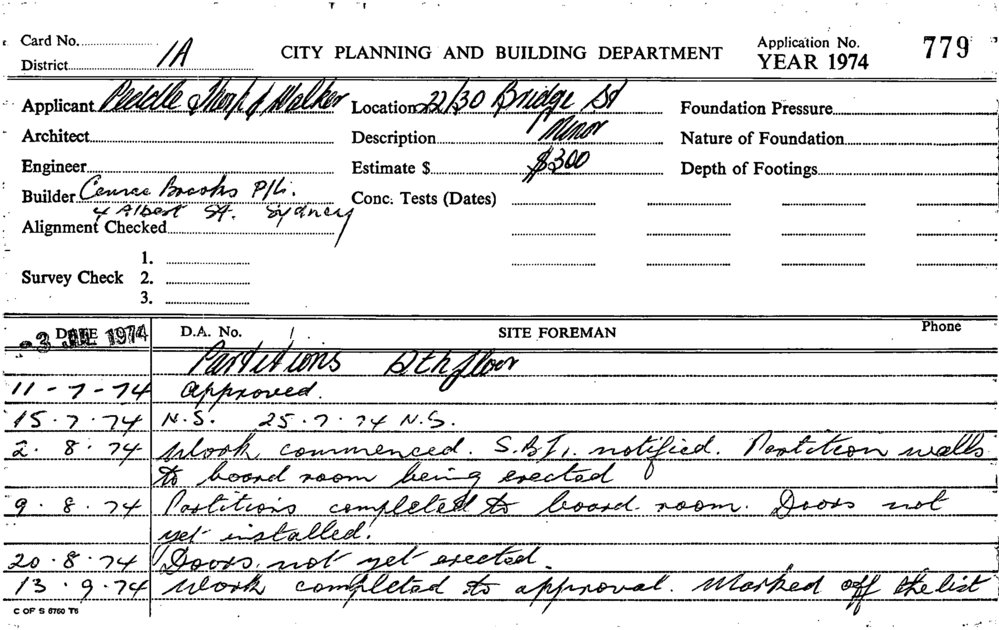 Card No.
District 1A
CITY PLANNING AND BUILDING DEPARTMENT
Application No. 779
YEAR 1974
Applicant Peddle Thorp & Walker
Location 22/30 Bridge St
Foundation Pressure
Architect
Description Minor
Nature of Foundation
Engineer
Estimate $ $300
Depth of Footings
Builder Brooks P/L.
4 Albert St. Sydney
Conc. Tests (Dates)
Alignment Checked
Survey Check
1.
2.
3.
DATE
3 1974
D.A. No.
SITE FOREMAN
Phone
Partitions floor
11-7-74 Approved.
15.7.74 N.S. 25.7.74 N.S.
2.8.74 Work commenced. notified. Partition walls
to board room being erected
9.8.74 Partitions completed to board room. Doors not
yet installed.
20.8.74 Doors not yet erected.
13.9.74 Work completed to approval. Marked off the list
C OF S 6760 T6